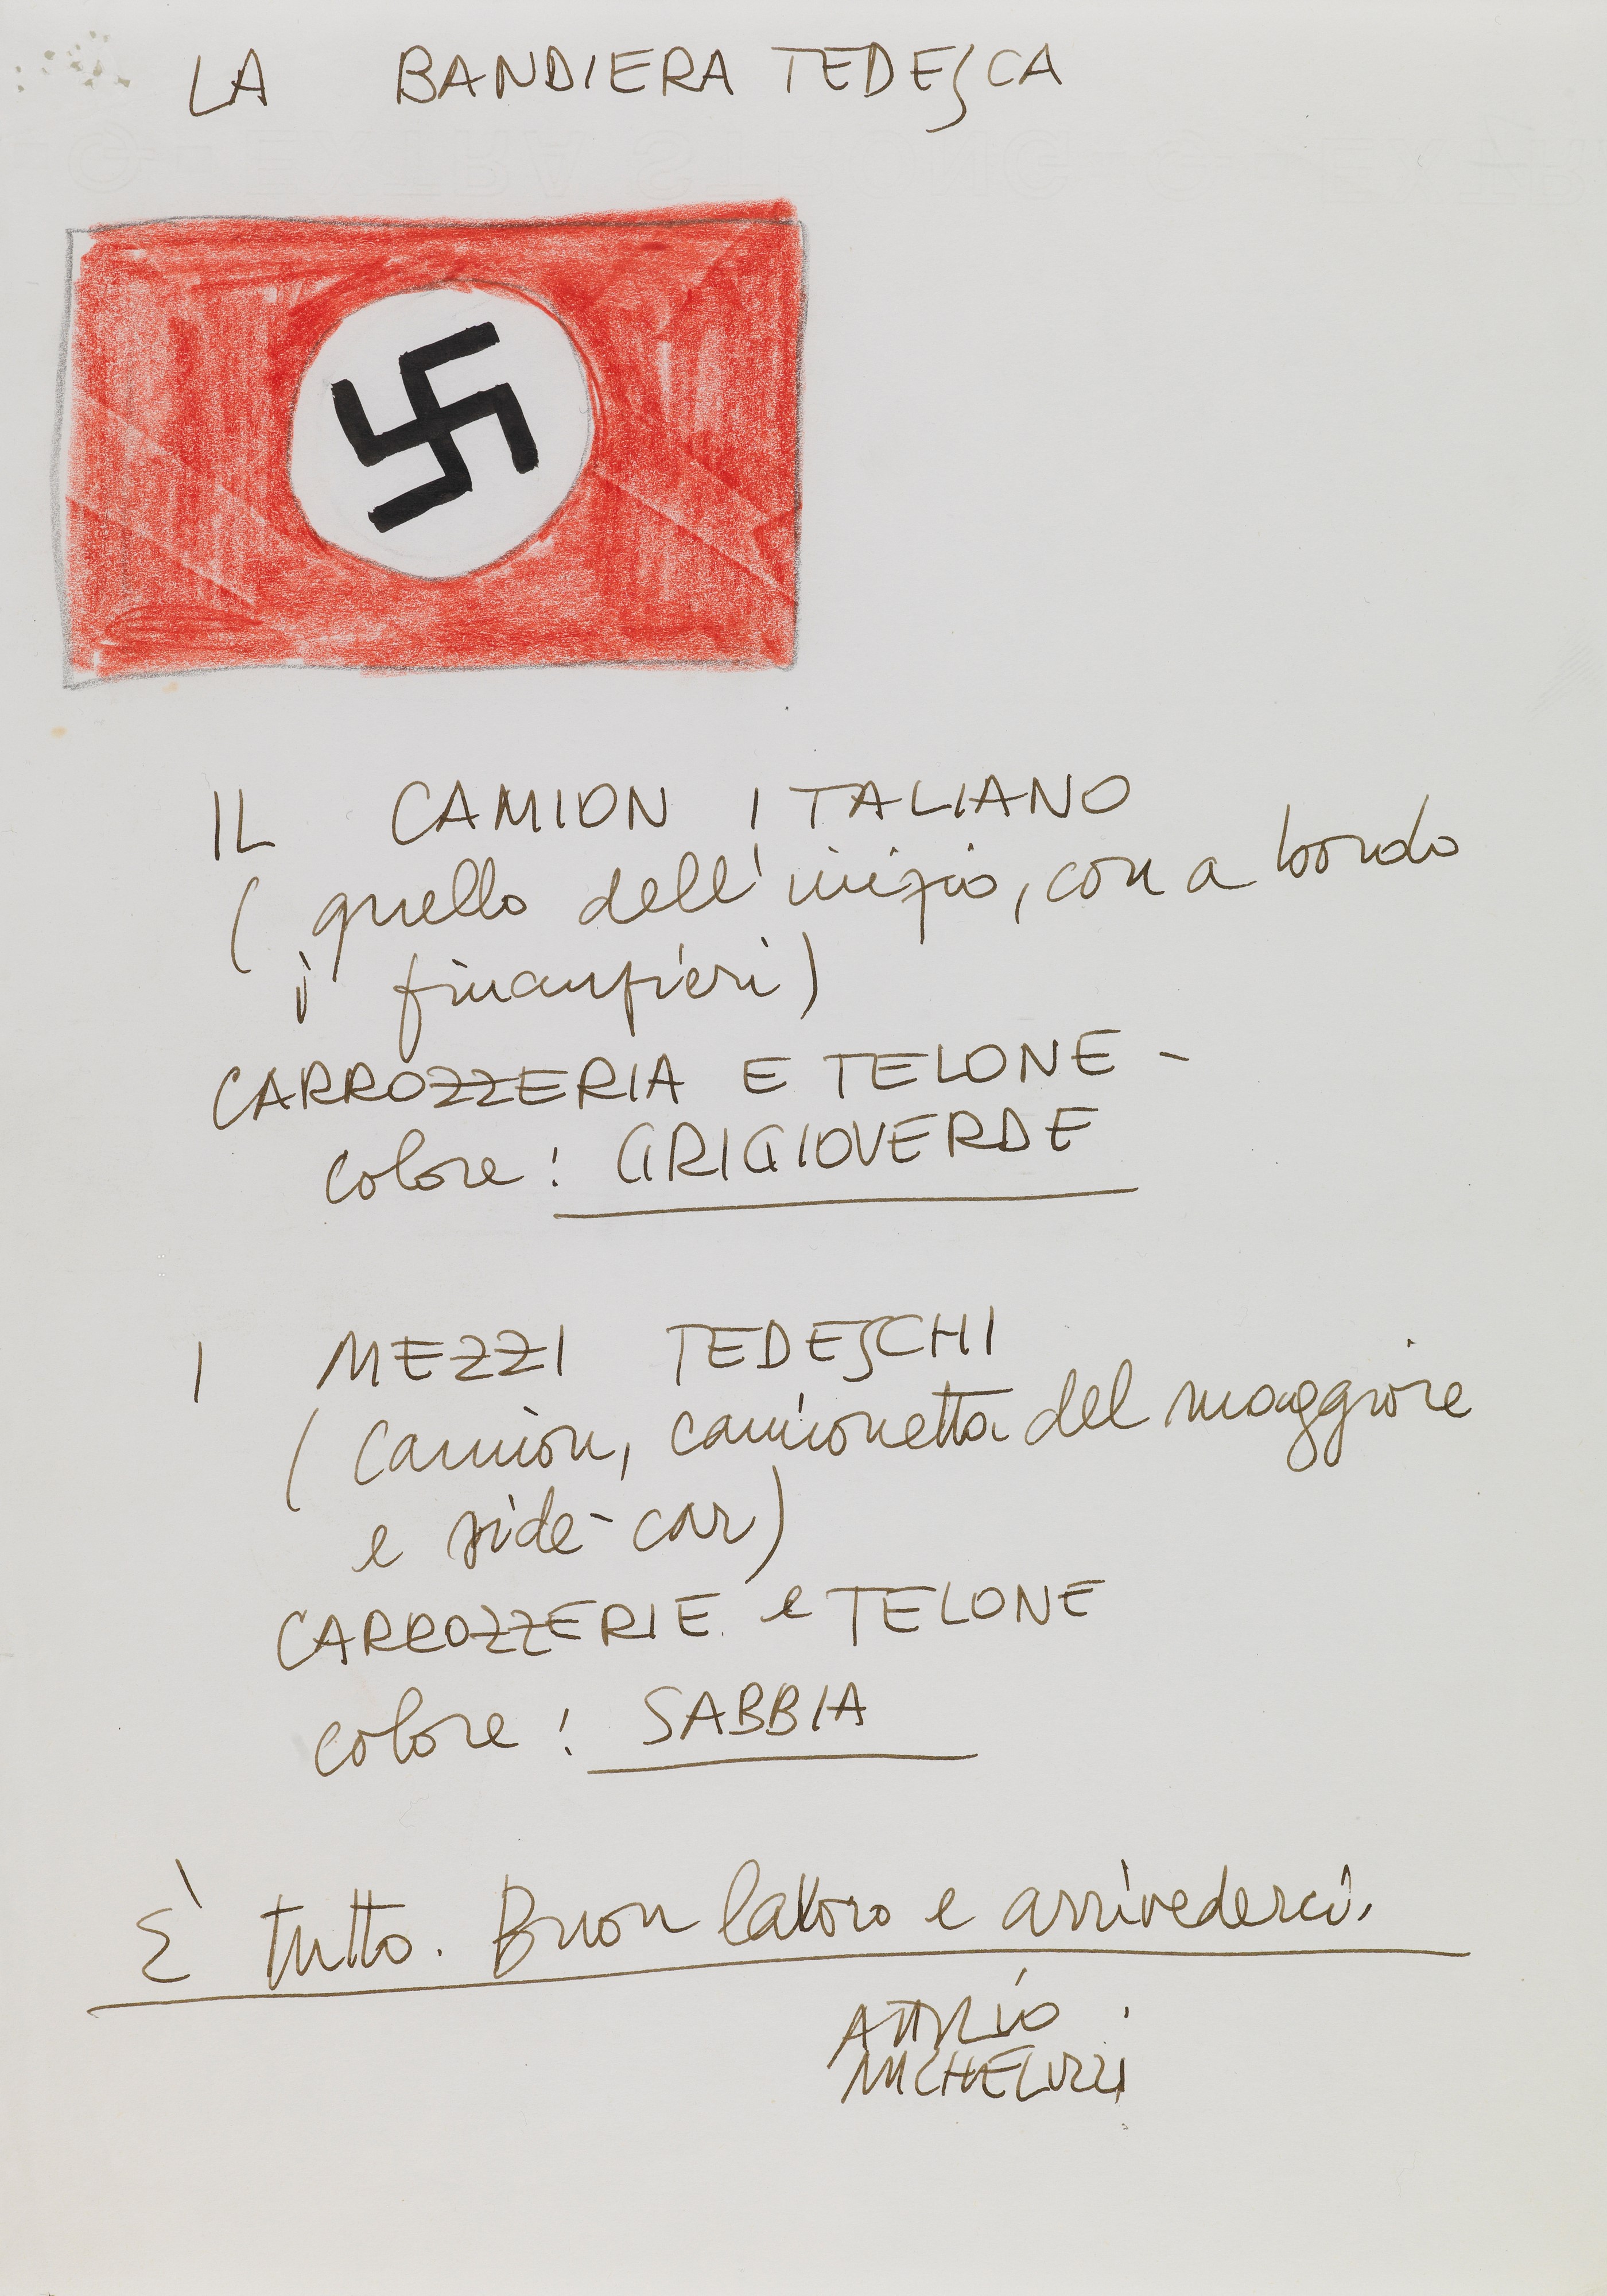 LA BANDIERA TEDESCA
IL CAMION ITALIANO
( quello dell'inizio, con a bordo
i finanzieri)
CARROZZERIA E TELONE -
colore: GRIGIOVERDE
I MEZZI TEDESCHI
( camion, camionetta del maggiore
e side-car)
CARROZZERIE e TELONE
colore: SABBIA
È tutto. Buon lavoro e arrivederci.
ATTILIO
MICHELUZZI